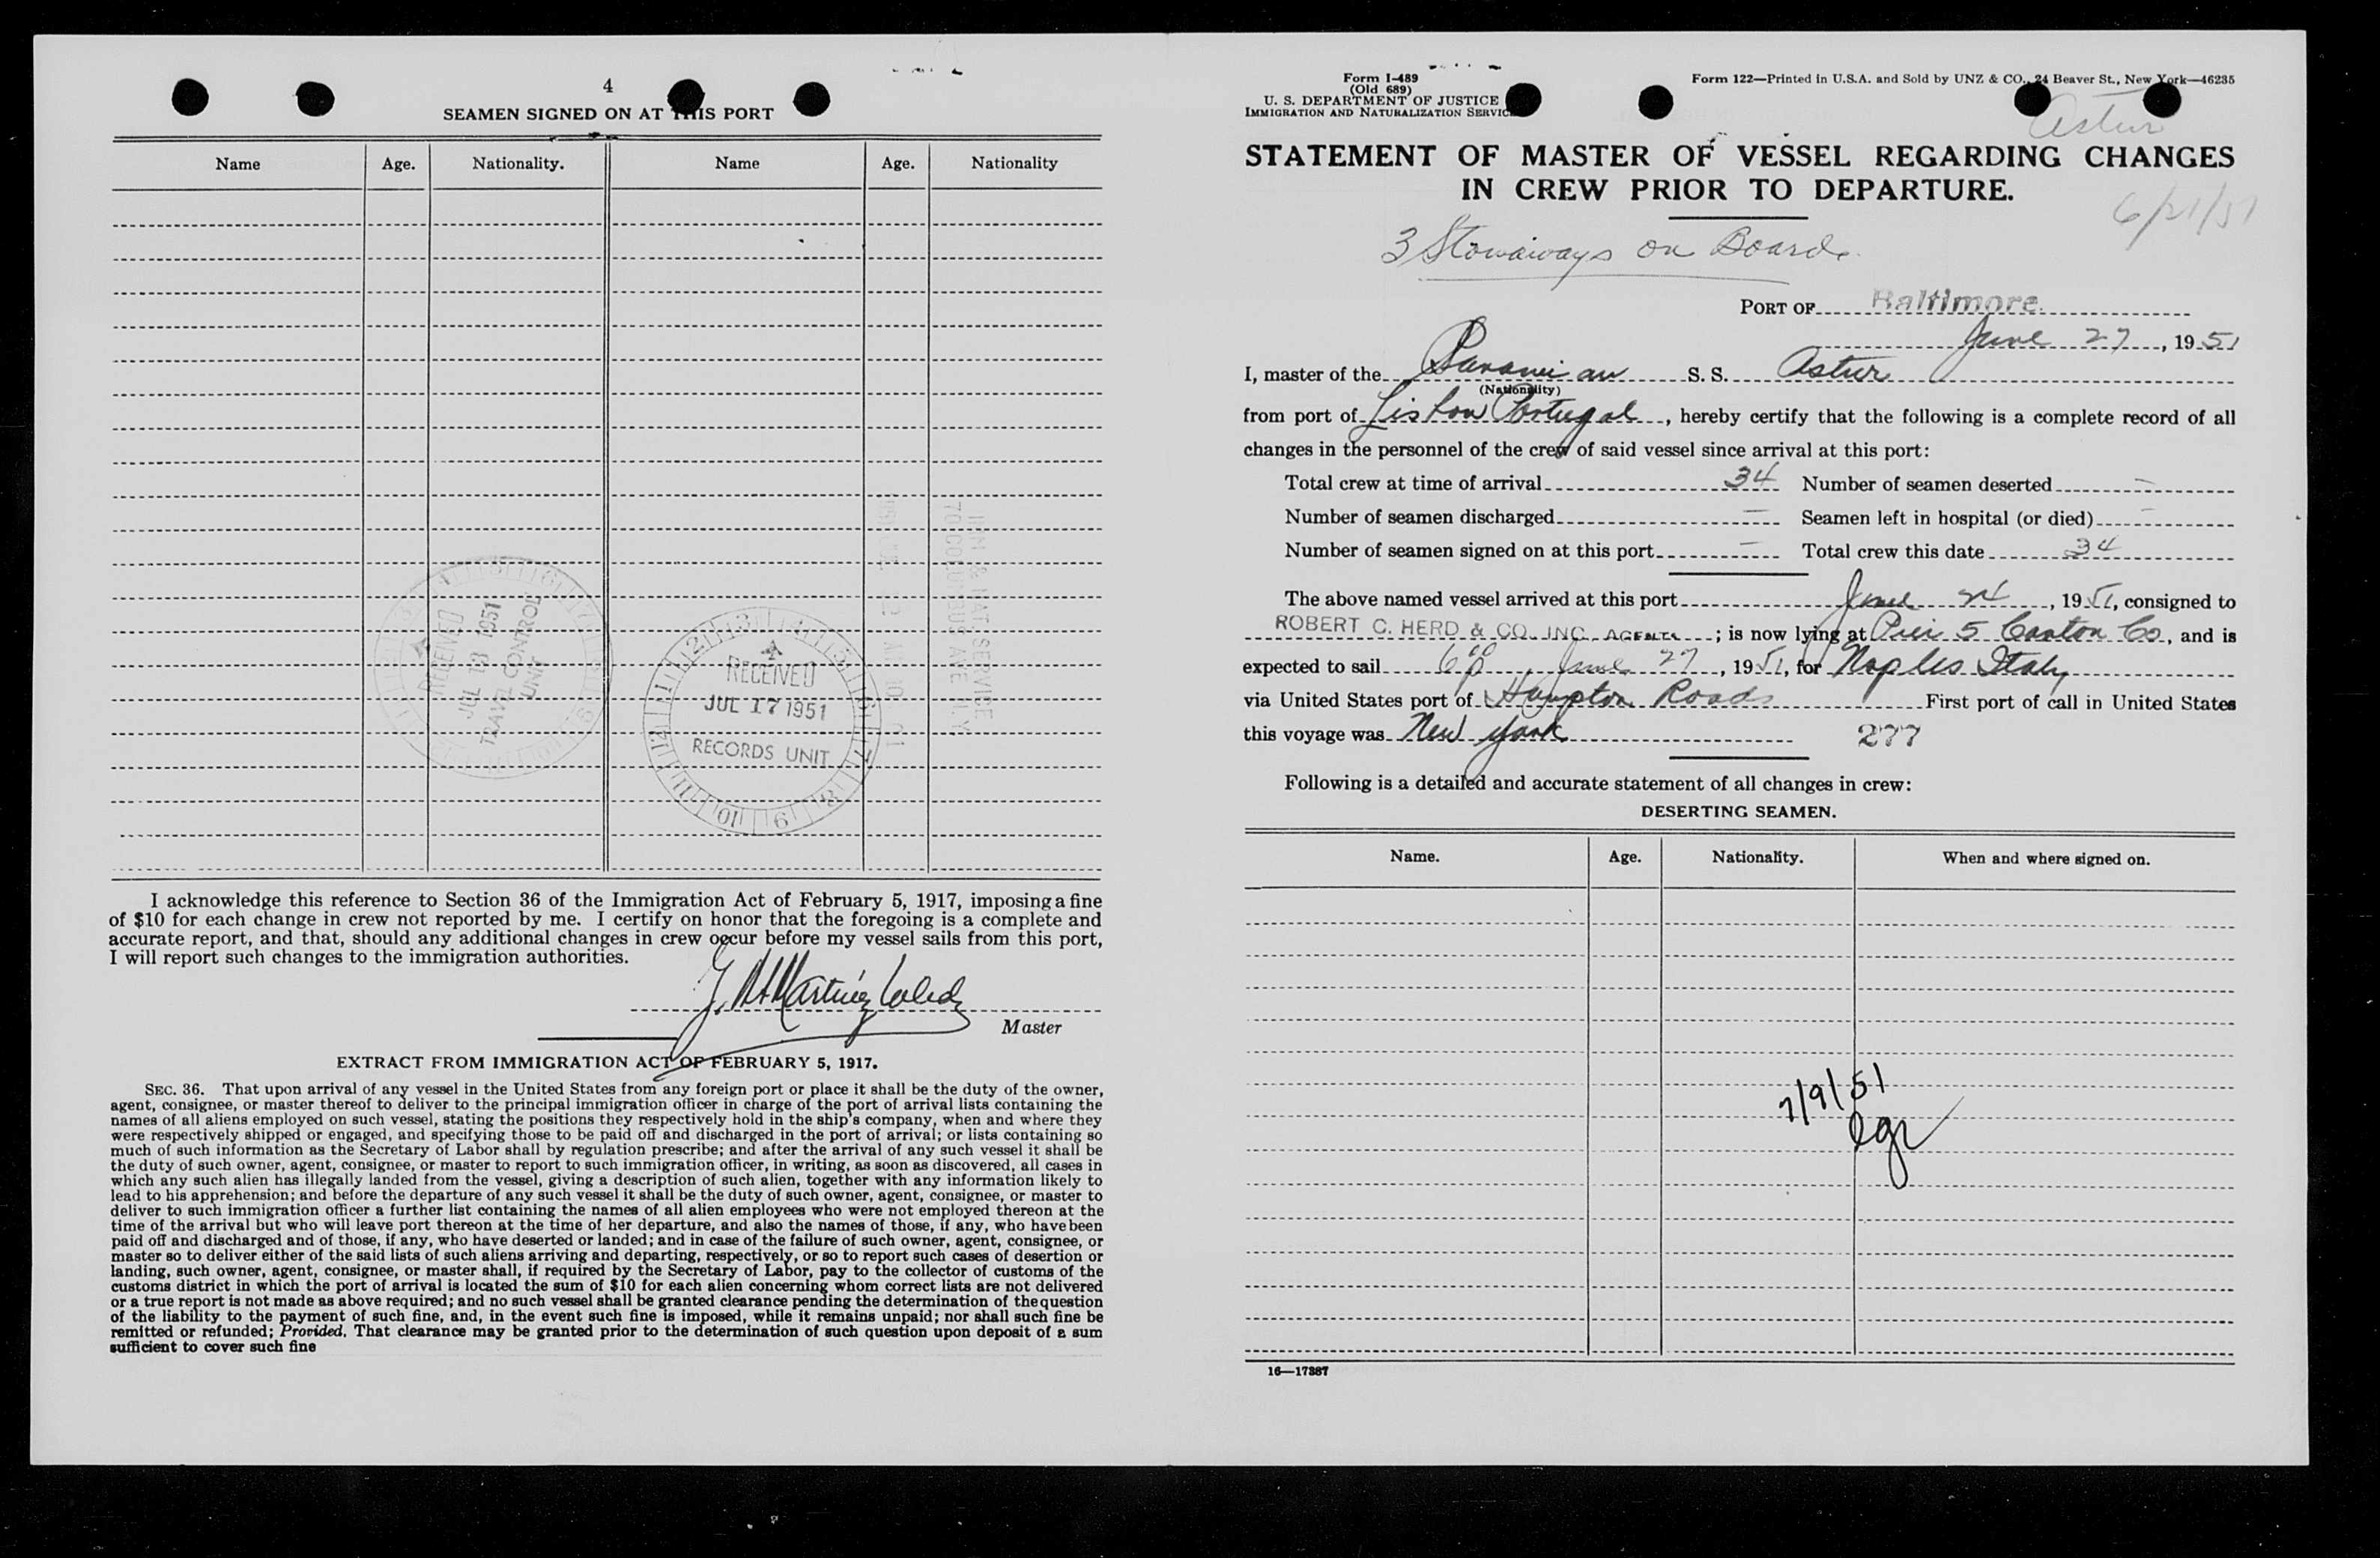 4
SEAMEN SIGNED ON AT THIS PORT
Name Age. Nationality. Name Age. Nationality
RECEIVED
JUL 18 1951
TRAVEL CONTROL
UNIT
RECEIVED
JUL 17 1951
RECORDS UNIT
IMM & NAT. SERVICE
70 COLUMBUS AVE N.Y.
I acknowledge this reference to Section 36 of the Immigration Act of February 5, 1917, imposing a fine
of $10 for each change in crew not reported by me. I certify on honor that the foregoing is a complete and
accurate report, and that, should any additional changes in crew occur before my vessel sails from this port,
I will report such changes to the immigration authorities.
Master
EXTRACT FROM IMMIGRATION ACT OF FEBRUARY 5, 1917.
SEC. 36. That upon arrival of any vessel in the United States from any foreign port or place it shall be the duty of the owner,
agent, consignee, or master thereof to deliver to the principal immigration officer in charge of the port of arrival lists containing the
names of all aliens employed on such vessel, stating the positions they respectively hold in the ship's company, when and where they
were respectively shipped or engaged, and specifying those to be paid off and discharged in the port of arrival; or lists containing so
much of such information as the Secretary of Labor shall by regulation prescribe; and after the arrival of any such vessel it shall be
the duty of such owner, agent, consignee, or master to report to such immigration officer, in writing, as soon as discovered, all cases in
which any such alien has illegally landed from the vessel, giving a description of such alien, together with any information likely to
lead to his apprehension; and before the departure of any such vessel it shall be the duty of such owner, agent, consignee, or master to
deliver to such immigration officer a further list containing the names of all alien employees who were not employed thereon at the
time of the arrival but who will leave port thereon at the time of her departure, and also the names of those, if any, who have been
paid off and discharged and of those, if any, who have deserted or landed; and in case of the failure of such owner, agent, consignee, or
master so to deliver either of the said lists of such aliens arriving and departing, respectively, or so to report such cases of desertion or
landing, such owner, agent, consignee, or master shall, if required by the Secretary of Labor, pay to the collector of customs of the
customs district in which the port of arrival is located the sum of $10 for each alien concerning whom correct lists are not delivered
or a true report is not made as above required; and no such vessel shall be granted clearance pending the determination of the question
of the liability to the payment of such fine, and, in the event such fine is imposed, while it remains unpaid; nor shall such fine be
remitted or refunded; Provided, That clearance may be granted prior to the determination of such question upon deposit of a sum
sufficient to cover such fine
Form I-489
(Old 689)
U. S. DEPARTMENT OF JUSTICE
IMMIGRATION AND NATURALIZATION SERVICE
Form 122—Printed in U.S.A. and Sold by UNZ & CO., 24 Beaver St., New York—46235
Astur
STATEMENT OF MASTER OF VESSEL REGARDING CHANGES
IN CREW PRIOR TO DEPARTURE.
6/21/51
3 Stowaways on Board.
PORT OF Baltimore
June 27, 1951
I, master of the Panamian S. S. Astur
(Nationality)
from port of Lisbon Portugal, hereby certify that the following is a complete record of all
changes in the personnel of the crew of said vessel since arrival at this port:
Total crew at time of arrival 34 Number of seamen deserted –
Number of seamen discharged – Seamen left in hospital (or died) –
Number of seamen signed on at this port – Total crew this date 34
The above named vessel arrived at this port June 24, 1951, consigned to
ROBERT C. HERD & CO. INC. AGENTS; is now lying at Pier 5 Canton Co, and is
expected to sail 6 00 p June 27, 1951, for Naples Italy
via United States port of Hampton Roads First port of call in United States
this voyage was New York 277
Following is a detailed and accurate statement of all changes in crew:
DESERTING SEAMEN.
Name. Age. Nationality. When and where signed on.
7/9/51
16—17387